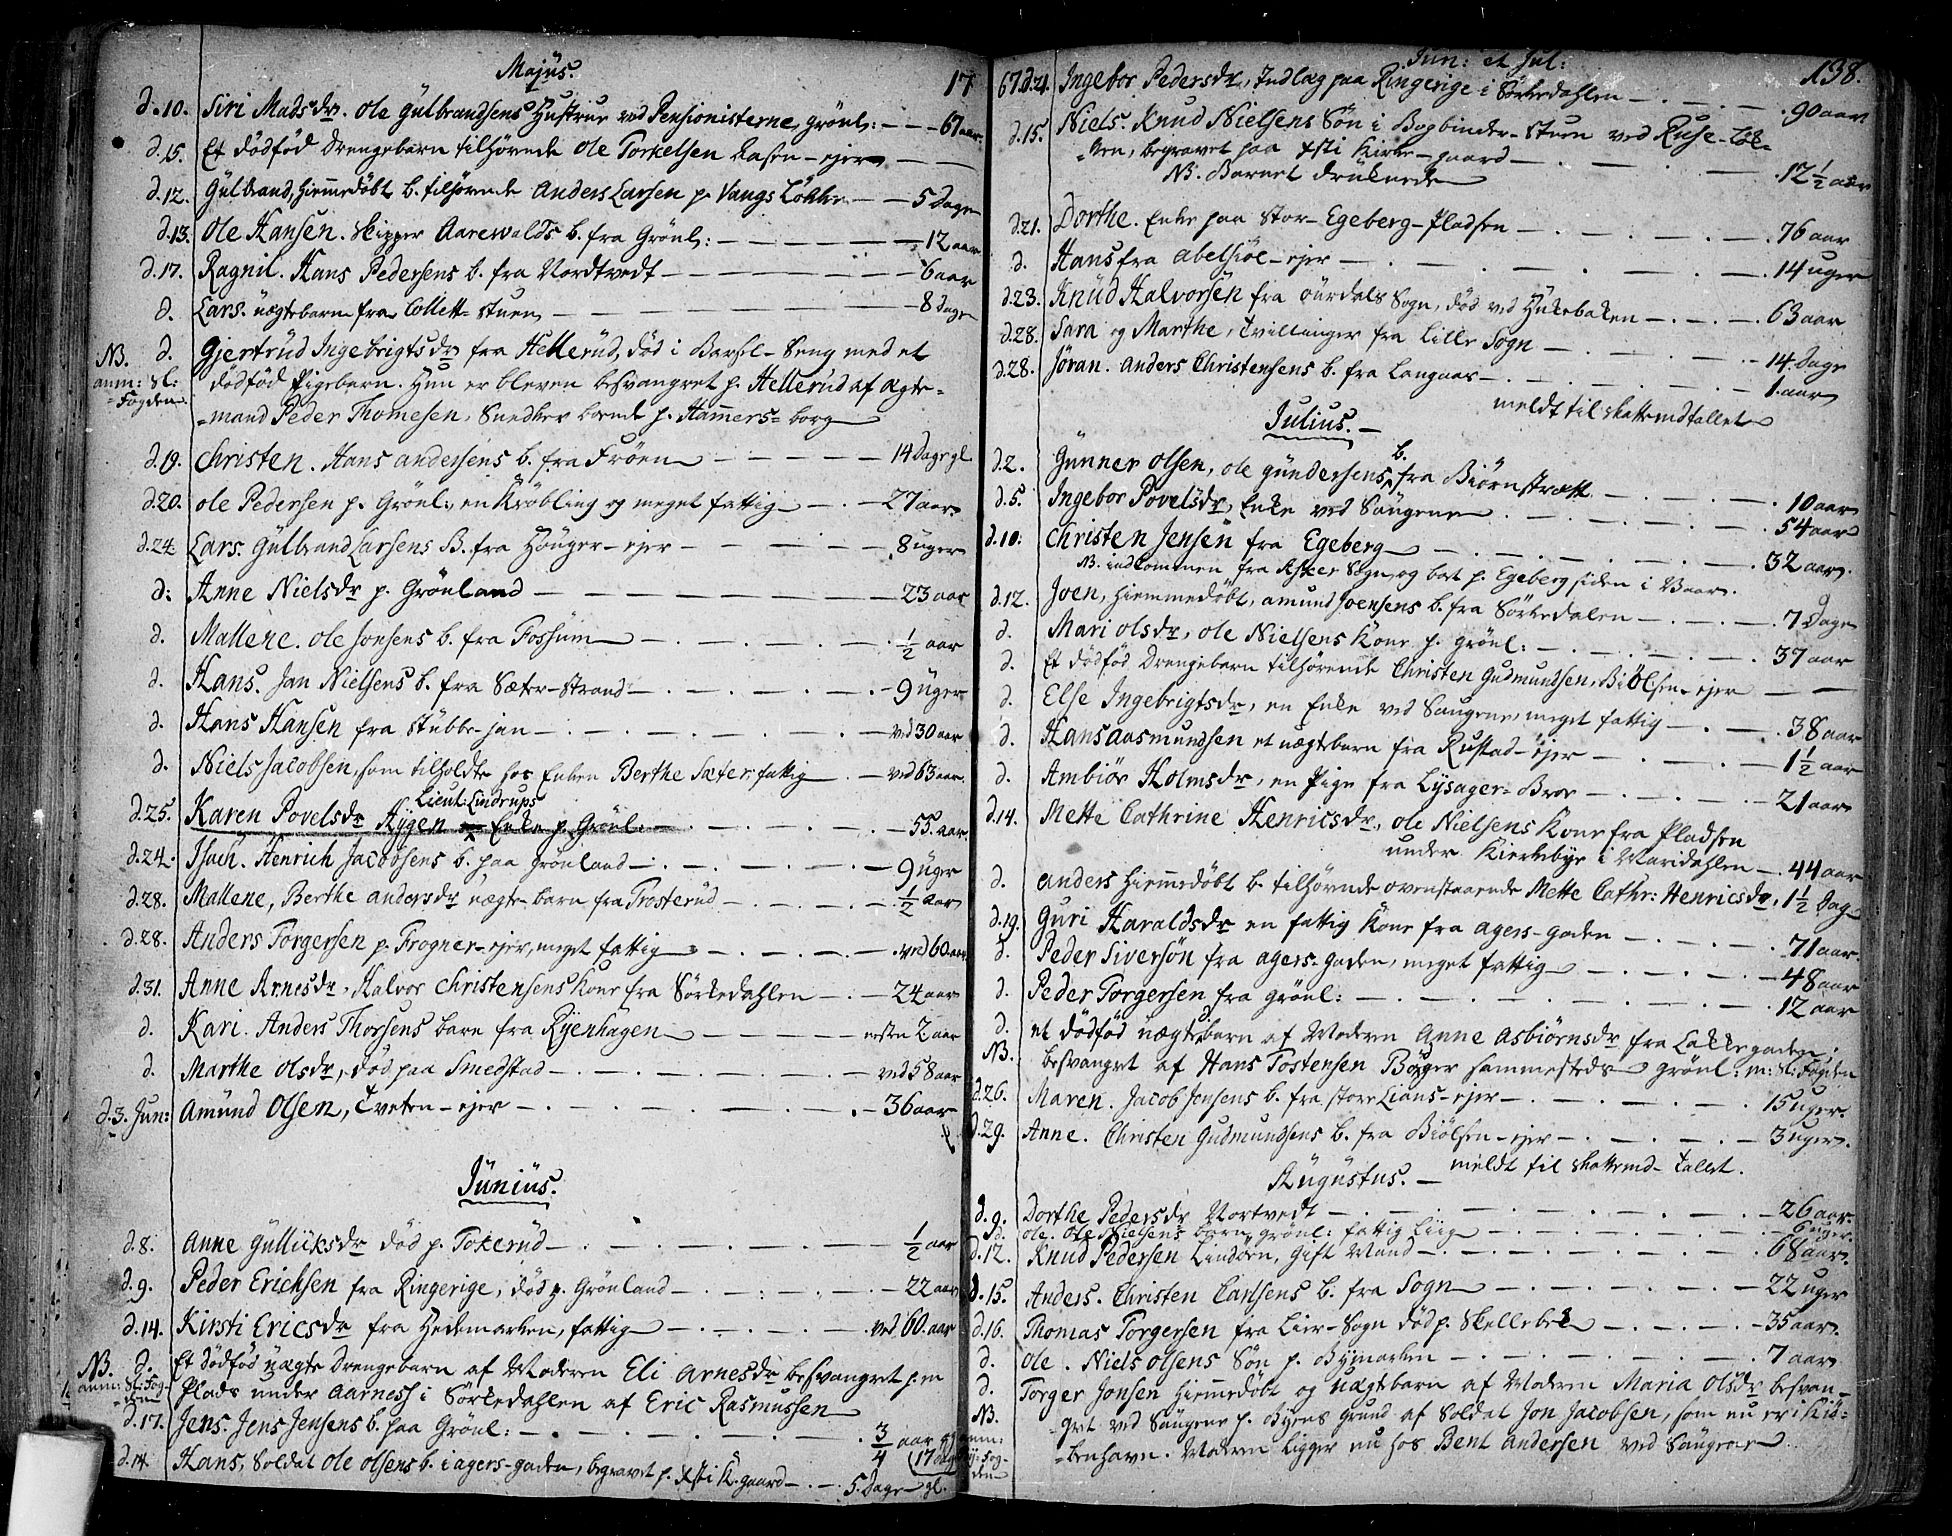 Majus.
17
d.10. Siri Madsdr. Ole Gulbrandsens Hustrue ved Pensionisterne, Grönl: - - - 67 aar
d.15. Et dödföd Drengebarn tilhörende Ole Torkelsen Aasen-ejer - -
d.12. Gulbrand, Hiemmedöbt b. tilhörende Anders Larsen p. Vangs Lökke - - 5 Dage
d.13. Ole Hansen. Skipper Aarewalds b. fra Grönl: - - - 12 aar
d.17. Ragnil. Hans Pedersens b. fra Nordtvedt - - - 6 aar
d. Lars. uægtebarn fra Collett-stuen - - - 8 dage
NB. d. Gjertrud Ingebrigtsdr fra Hellerud, död i Barsel-Seng med et
anm: Sl: dödföd Pigebarn. Hun er bleven besvangret p. Hellerud af Ægte-
Fogden. -mand Peder Thomesen, Snedker boende p. Hammers-borg
d.19. Christen. Hans Andersens b. fra Fröen - - - 14 Dage gl
d.20. Ole Pedersen p. Grönl:, en Kröbling og meget fattig - - 27 aar
d.24. Lars. Gulbrand Larsens B. fra Houger-ejer - - - 8 uger
d: Anne Nielsdr p. Grönland - - - 23 aar
d. Mallene. Ole Jonsens b. fra Fossum - - - 1/2 aar
d. Hans. Jan Nielsens b. fra Sæter-strand - - - 9 uger
d. Hans Hansen fra Stubbe-jan - - - ved 30 aar
d. Niels Jacobsen, som tilholdte hos Enken Berthe Sæter, fattig - ved 63 aar.
Lieut: Lindrups
d.25. Karen Povelsdr Hygen Enke p. Grönl. - - - 55. aar
d.24. Isach. Henrich Jacobsens b. paa Grönland - - - 9 uger
d.28. Mallene, Berthe Andersdr uægte-barn fra Trosterud - - - 1/2 aar
d.28. Anders Torgersen p. Frogner-ejer, meget fattig - - - ved 60 aar
d.31. Anne Arnesdr, Halvor Christensens Kone fra Sörkedahlen - - 24 aar
d. Kari. Anders Thorsens barn fra Ryenhagen - - - næsten 2 aar
d. Marthe Olsdr, död paa Smedstad - - - ved 58 aar
d.3. Jun: Amund Olsen, Tveten-ejer - - - 36 aar
Junius.
d.8. Anne Gullicksdr död p. Tokerud - - - 1/2 aar
d.9. Peder Erichsen fra Ringerige, död p. Grönland - - - 22 aar
d.14. Kirsti Ericsdr fra Hedemarken, fattig - - - ved 60. aar
NB. d. Et dödföd uægte Drengebarn af Moderen Eli Arnesdr besvangret p. en
anm: Sl: Fog- Plads under Aarness i Sörkedahlen af Eric Rasmussen
den
d.17. Jens. Jens Jensens b. paa Grönl: - - - 3/4 aar
d.14 Hans, Soldat Ole Olsens b. i Agers-gaden, begravet p. Xsti K.gaard - - 5. Dage gl.
Jun: et Jul:
138.
67. d.21. Ingebor Pedersdr, Indlæg paa Ringerige i Sörkedahlen - - - 90 aar
d.15. Niels. Knud Nielsens Sön i Bogbinder-stuen ved Ruse-lök-
-ken, begravet paa Xsti Kirke-gaard - - - 12 1/2 aar
NB. Barnet druknede
d.21. Dorthe. Enke paa Stor-Egeberg-Pladsen - - - 76 aar
d. Hans fra Abelsiöe-ejer - - - 14 uger
d.23. Knud Halvorsen fra Ourdals Sogn, död ved Hukebaken - - - 63 aar
d.28. Sara og Marthe, Tvillinger fra Lille Sogn - - - 14. Dage
d.28. Jöran. Anders Christensens b. fra Langaas - - - 1. aar
meldt til skattemdtallet
Julius.
d.2. Gunner Olsen, Ole Gundersens b. fra Biörnstræt - - - 10 aar
d.5. Ingebor Povelsdr, Enke ved Saugene - - - 54 aar
d.10. Christen Jensen fra Egeberg - - - 32 aar.
NB. indkommen fra Asker Sogn, og boet p. Egeberg siden i Vaar.
d.12. Joen, Hiemmedöbt, Amund Joensens b. fra Sörkedalen - - - 7 Dage
d. Mari Olsdr, Ole Nielsens Kone p. Grönl: - - - 37 aar
d. Et dödföd Drengebarn tilhörende Christen Gudmundsen, Biölsen-ejer - -
d. Else Ingebrigtsdr, en Enke ved Saugene, meget fattig - - - 38 aar
d. Hans Aasmundsen et uægtebarn fra Rustad-ejer - - - 1 1/2 aar
d. Ambiör Holmsdr, en Pige fra Lysager-Broe - - - 21 aar
d.14. Mette Cathrine Henricsdr, Ole Nielsens Kone fra Pladsen
under Kierkebye i Maridahlen - 44 aar
d. Anders Hiemmedöbt b. tilhörende ovenstaaende Mette Cathr: Henricsdr, 1 1/2 Dag
d.19. Guri Haraldsdr en fattig Kone fra Agers-gaden - - - 71 aar.
d. Peder Siversön fra Agers-gaden, meget fattig - - - 48 aar
d. Peder Torgersen fra Grönl: - - - 12 aar
d. et dödföd uægtebarn af Moderen Anne Asbiörnsdr fra Lakkegaden,
NB. besvangret af Hans Tostensen Börger sammesteds Grönl: m: Sl: Fogden
d.26. Maren. Jacob Jonsens b. fra store Lians-ejer - - - 15 uger.
d.29. Anne. Christen Gudmundsens b. fra Biölsen-ejer - - - 3 uger.
meldt til skattemd-tallet.
Augustus.
d.9. Dorthe Pedersdr Nortvedt - - - 26 aar.
d. Ole. Ole Nielsens barn, Grönl: fattig Liig - - - 6 uger.
d.12. Knud Pedersen Lindörn, Gift Mand - - - 68 aar.
d.15. Anders. Christen Carlsens b. fra Sogn - - - 22 uger
d.16. Thomas Torgersen fra Lier-Sogn död p. Skellebek - - - 35 aar.
d. Ole. Niels Olsens Sön p. Bymarken - - - 7 aar
d. Torger Jonsen Hiemmedöbt og uægtebarn af Moderen Maria Olsdr besvan-
NB. -gret ved Saugene p. Byens Grund af Soldat Jon Jacobsen, som nu er i Kiö-
-benhavn. Moderen ligger nu hos Bent Andersen ved Saugene